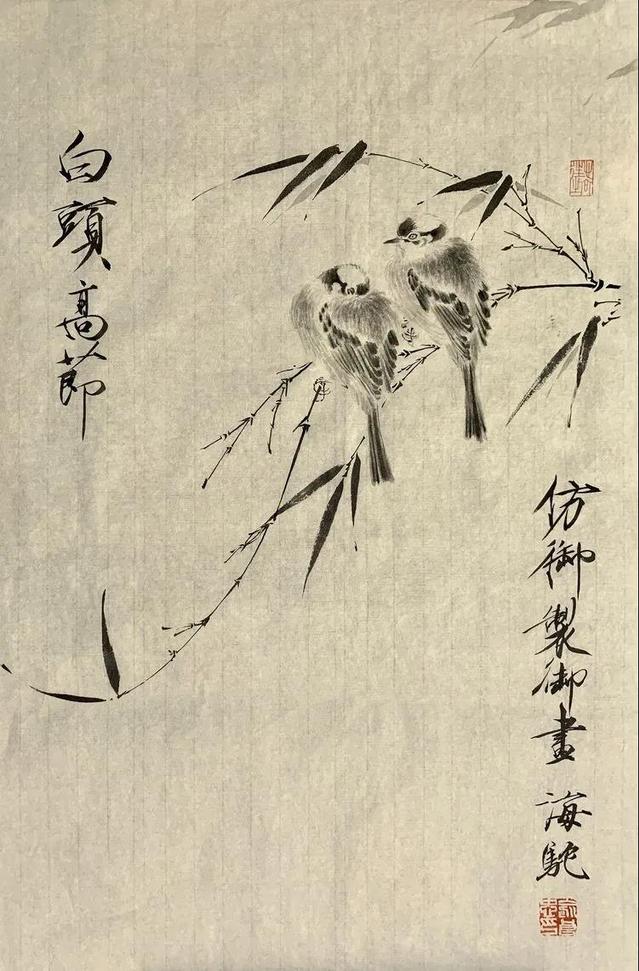 白頭高節
仿御製御畫 海駝